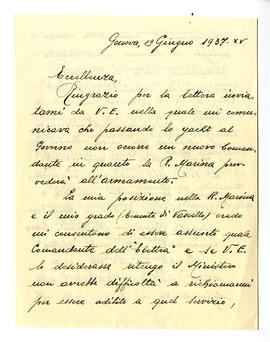 Genova, 19 Giugno 1937. XV
Eccellenza,
Ringrazio per la lettera invia-
tami da V.E. nella quale mi comu-
nicava che passando lo yacht al
Governo non occorre un nuovo Coman-
dante in quanto la R. Marina prov-
vederà all'armamento.
La mia posizione nella R. Marina
e il mio grado (Tenente di Vascello) credo
mi consentano di essere assunto quale
Comandante dell'"Elettra" e se V.E.
lo desiderasse ritengo il Ministero
non avrebbe difficoltà a richiamarmi
per essere adibito a quel servizio,